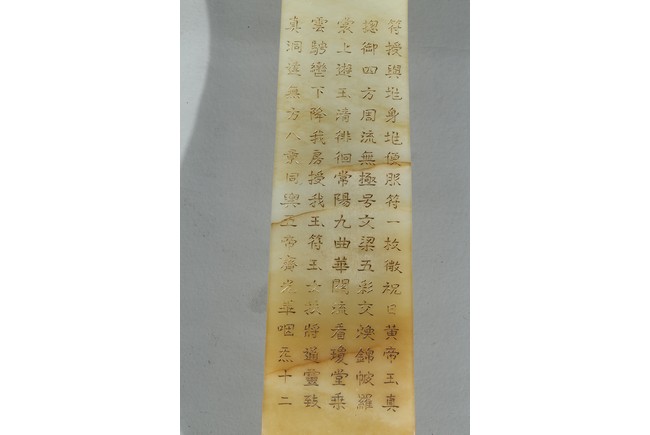 符授與地身地便服符一枚微祝曰黃帝玉真
摠御四方周流無極号文梁五彩文煥錦帔羅
裳上遊玉清徘徊常陽九曲華關流看瓊堂乘
雲騁轡下降我房授我玉符玉女扶將通靈致
真洞達無方八景同輿五帝齊光羊咽炁十二